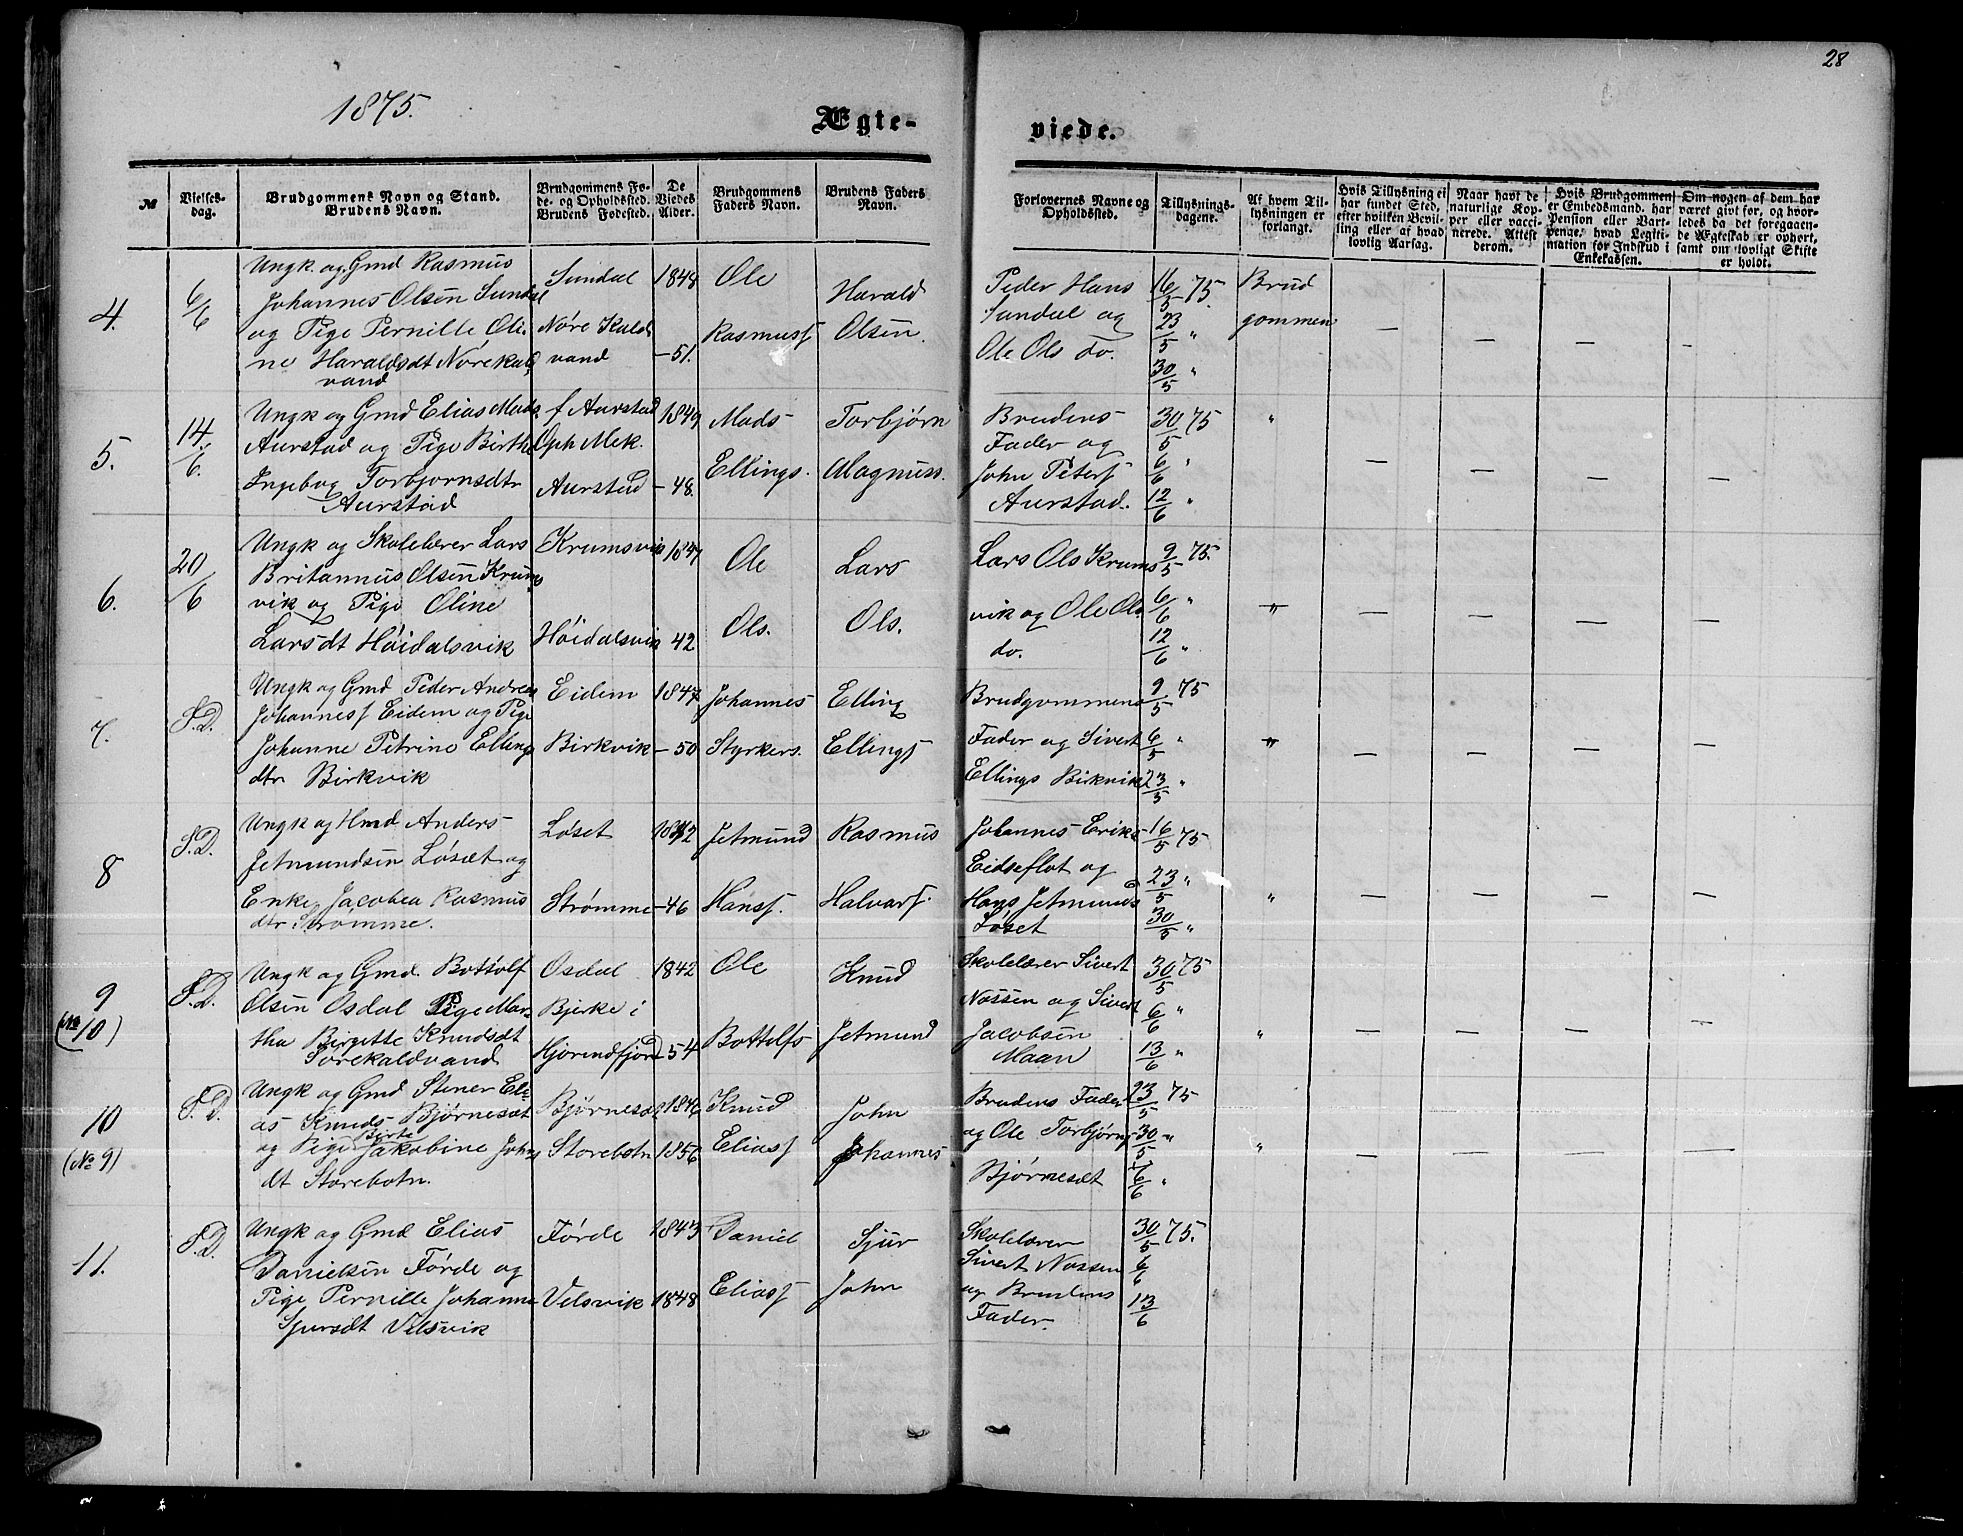 28
1875.
Ægte-
viede.
№
Vielses-
dag.
Brudgommens Navn og Stand.
Brudens Navn.
Brudgommens Fø-
de- og Opholdssted.
Brudens Fødested.
De
Viedes
Alder.
Brudgommens
Faders Navn.
Brudens Faders
Navn.
Forlovernes Navne og
Opholdssted.
Tillysnings-
dagene.
Af hvem Til-
lysningen er
forlangt.
Hvis Tillysning ei
har fundet Sted,
efter hvilken Bevil-
ling eller af hvad
lovlig Aarsag.
Naar havt de
naturlige Kop-
per eller vacci-
nerede. Attest
derom.
Hvis Brudgommen
er Embedsmand, har
Pension eller Vart-
penge, hvad Legiti-
mation for Indskud i
Enkekassen.
Om nogen af dem har
været gift før, og hvor-
ledes da det foregaaen-
de Ægteskab er ophørt,
samt om lovligt Skifte
er holdt.
4.
6/6
Ungk. og Gmd Rasmus
Johannes Olsen Sundal
og Pige Pernille Oli-
ne Haraldsdt Nørekald
vand
Sundal
Nøre Kald
vand
1848
-51.
Ole
Rasmuss
Harald
Olsen.
Peder Hans
Sundal og
Ole Ols do.
16/5 75.
23/5 "
30/5 "
Brud
gommen
5.
14/6.
Ungk og Gmd Elias Mads
Aurstad og Pige Birthe
Ingebog Torbjørnsdtr
Aurstad
f Aurstad
Oph Mek.
Aurstad
1849
-48.
Mads
Ellings.
Torbjørn
Magnuss.
Brudens
Fader og
John Peters
Aurstad.
30/5 75
6/6 "
12/6 "
"
6.
20/6
Ungk og Skolelærer Lars
Britannus Olsen Krums
vik og Pige Oline
Larsdt Høidalsvik
Krumsvik
Høidalsvik
1847
42
Ole
Ols.
Lars
Ols.
Lars Ols Krums
vik og Ole Ols
do.
9/5 75.
6/6 "
12/6 "
"
7.
S.D.
Ungk og Gmd Peder Andreas
Johanness Eidem og Pige
Johanne Petrine Ellings
dtr Birkvik
Eidem
Birkvik
1847
-50
Johannes
Styrkers.
Elling
Ellings
Brudgommens
Fader og Sivert
Ellings Birkvik
9/5 75
6/5 "
23/5 "
"
8
S.D.
Ungk og Hmd Anders
Jetmundsen Løsæt og
Enke Jacobea Rasmus
dtr Strømme.
Løset
Strømme
1842
-46
Jetmund
Hanss.
Rasmus
Halvars.
Johannes Eriks
Eidseflot og
Hans Jetmunds
Løset
16/5 75
23/5 "
30/5 "
"
9
(No 10)
S.D.
Ungk og Gmd. Bottolf
Olsen Osdal Pige Mar
tha Birgitte Knudsdt
Sørekaldvand
Osdal
Bjerke i
Hjørendfjord
1842
-54
Ole
Bottolfs
Knud
Jetmund
Skolelærer Sivert
Nossen og Sivert
Jacobsen
Maan
30/5 75
6/6 "
13/6 "
"
10
(No 9)
S.D.
Ungk og Gmd Stener Eli-
as Knuds Bjørnesæt
og Pige Birte Jakobine Johns
dt Storebotn.
Bjørnesæt
Storebotn
1846
1856
Knud
Eliass
John
Johannes
Brudens Fader
og Ole Torbjørns
Bjørnesæt
23/5 75
30/5 "
6/6 "
"
11.
S.D.
Ungk og Gmd Elias
Danielsen Førde og
Pige Pernille Johanne
Sjursdt Velsvik
Førde
Velsvik
1843
1848
Daniel
Eliass
Sjur
John
Skolelærer
Sivert Nossen
og Brudens
Fader.
30/5 75.
6/6
13/6